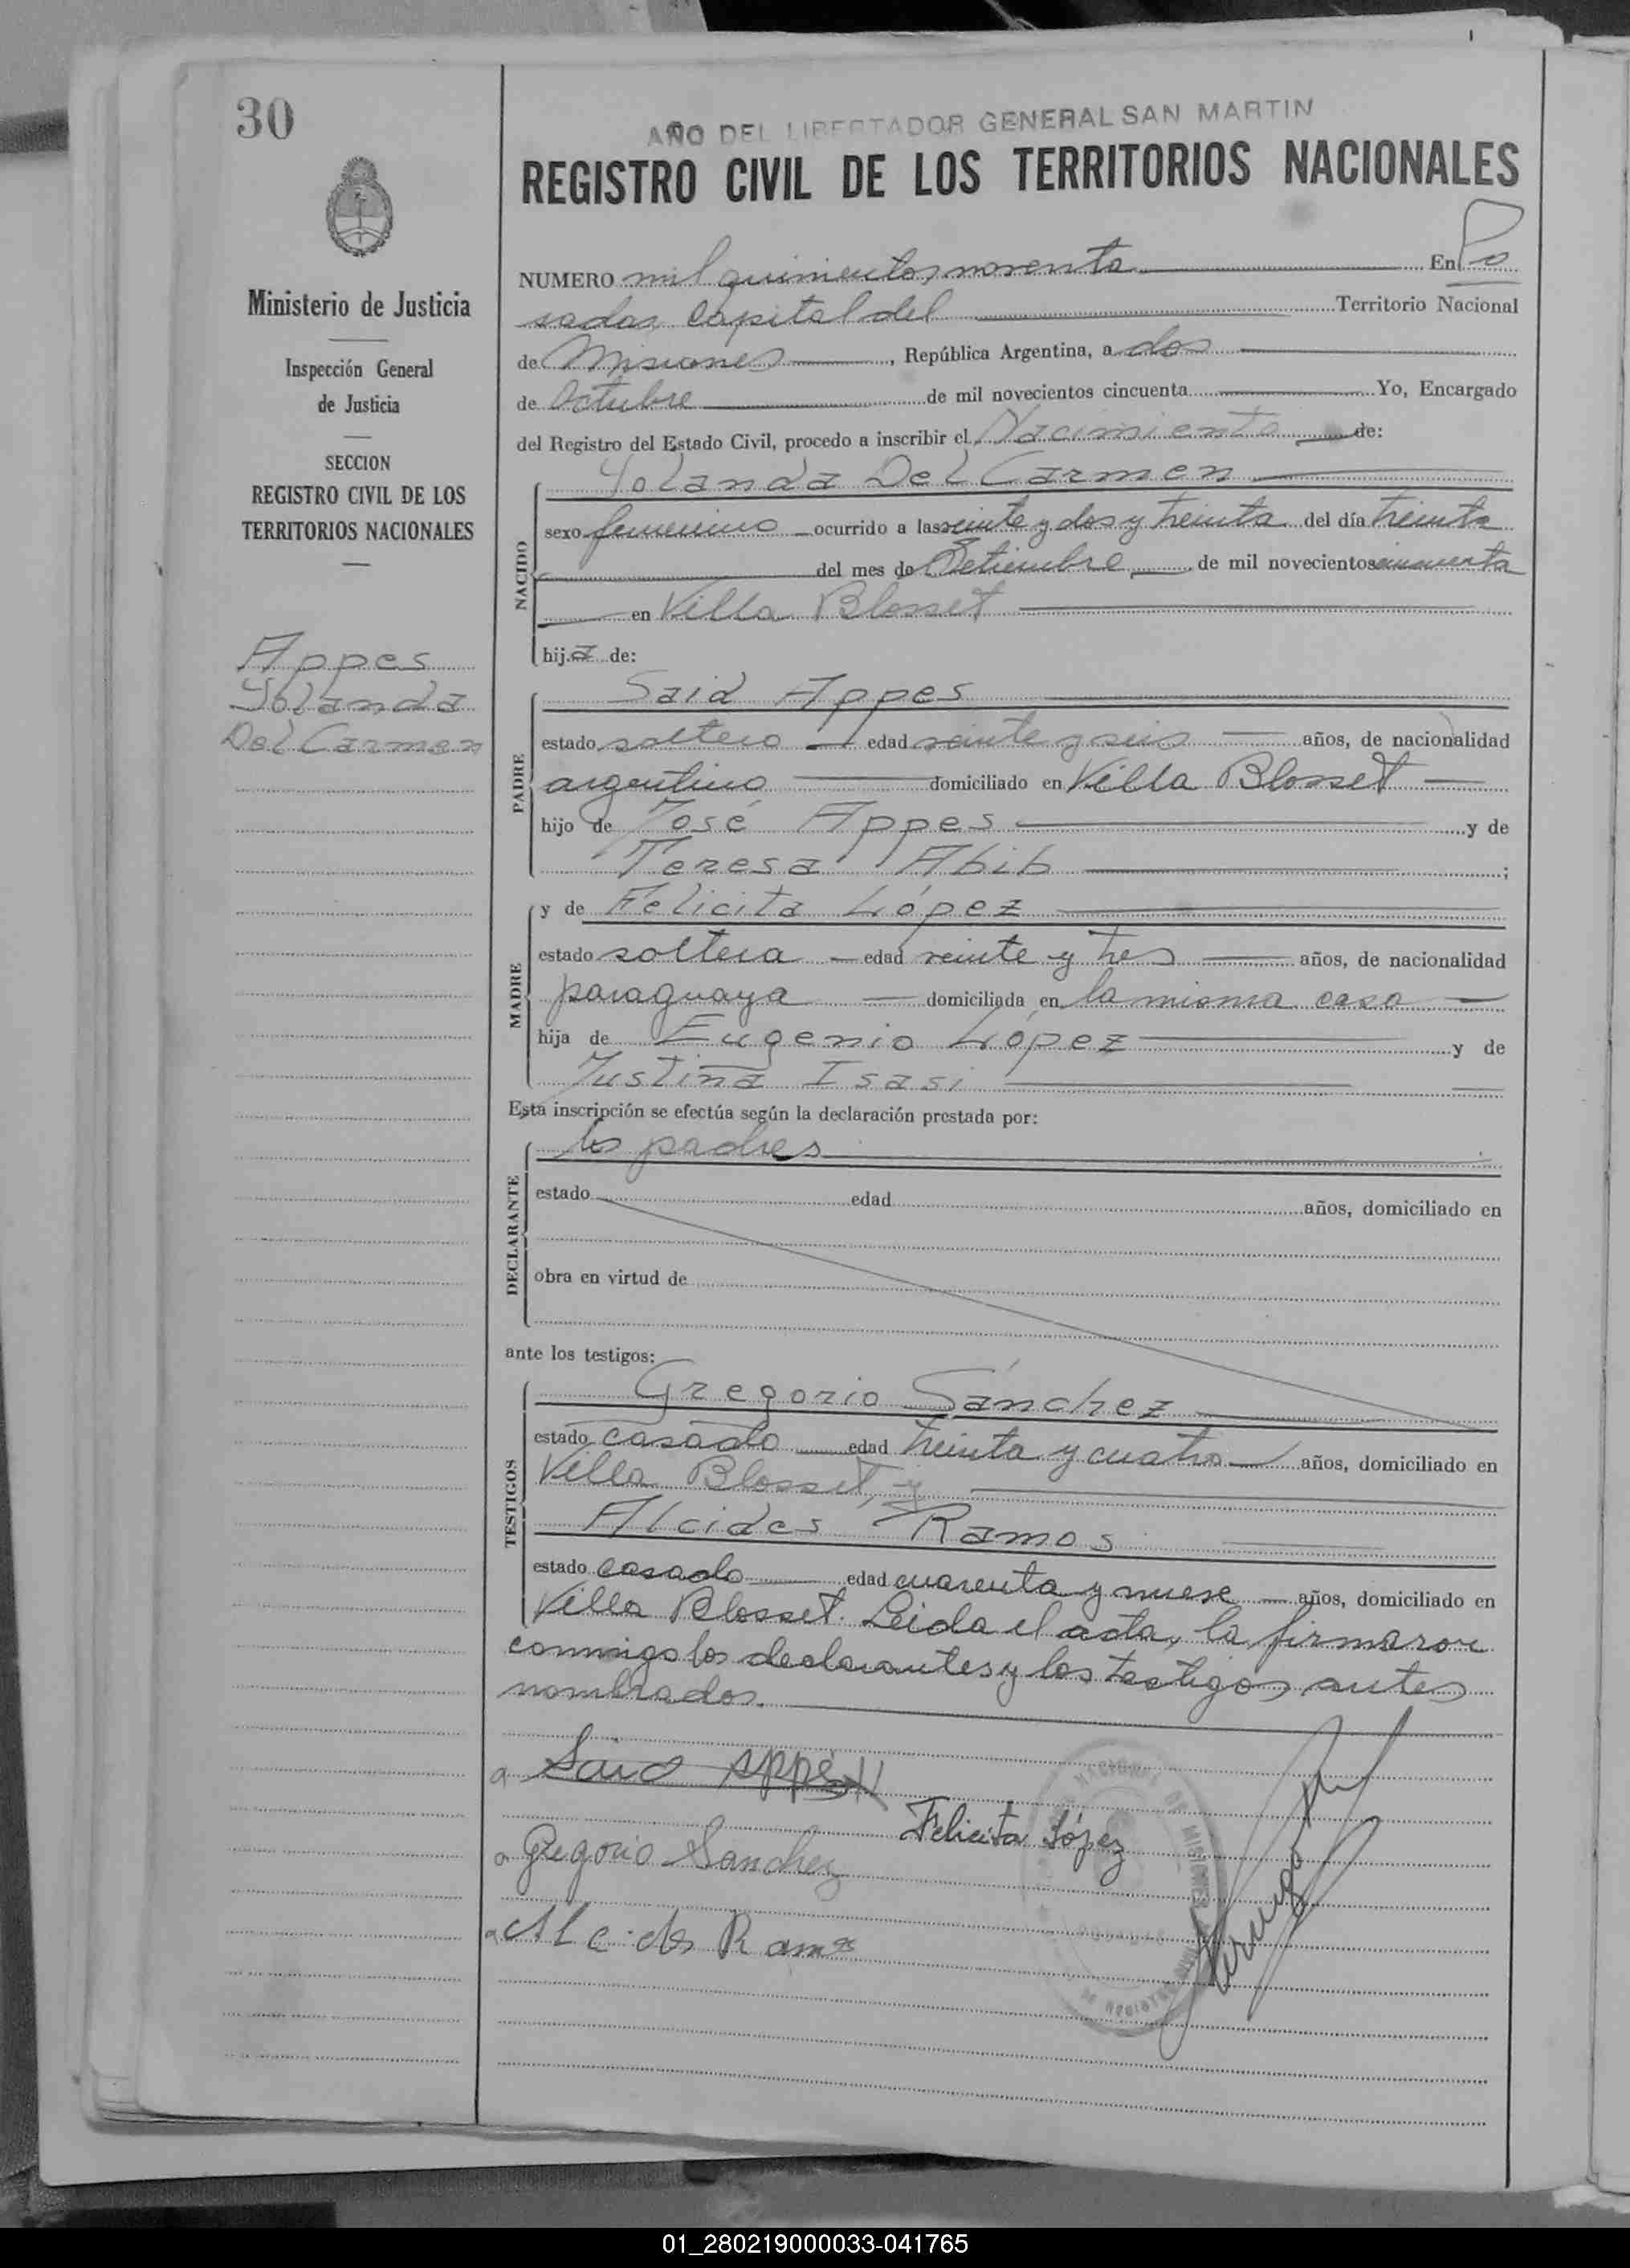 30
AÑO DEL LIBERTADOR GENERAL SAN MARTIN
REGISTRO CIVIL DE LOS TERRITORIOS NACIONALES
Ministerio de Justicia
Inspección General
de Justicia
SECCION
REGISTRO CIVIL DE LOS
TERRITORIOS NACIONALES
Appes
Yolanda
Del Carmen
NUMERO mil quinientos noventa En Po
sadas Capital del Territorio Nacional
de Misiones, República Argentina, a dos
de Octubre de mil novecientos cincuenta Yo, Encargado
del Registro del Estado Civil, procedo a inscribir el Nacimiento de:
NACIDO
Yolanda Del Carmen
sexo femenino ocurrido a las veinte y dos y treinta del día treinta
del mes de Setiembre de mil novecientos cincuenta
en Villa Blosset
hija de:
PADRE
Said Appes
estado soltero edad veinte y seis años, de nacionalidad
argentino domiciliado en Villa Blosset
hijo de José Appes y de
Teresa Abib;
MADRE
y de Felicita López
estado soltera edad veinte y tres años, de nacionalidad
paraguaya domiciliada en la misma casa
hija de Eugenio López y de
Justina Isasi
Esta inscripción se efectúa según la declaración prestada por:
DECLARANTE
los padres
estado edad años, domiciliado en
obra en virtud de
ante los testigos:
TESTIGOS
Gregorio Sánchez
estado casado edad treinta y cuatro años, domiciliado en
Villa Blosset, y
Alcides Ramos
estado casado edad cuarenta y nueve años, domiciliado en
Villa Blosset. Leida el acta, la firmaron
conmigo los declarantes y los testigos antes
nombrados.
a Said Appes
Felicita López
a Gregorio Sanchez
a Alcides Ramos
MISIONES
DE REGISTRO
01_280219000033-041765